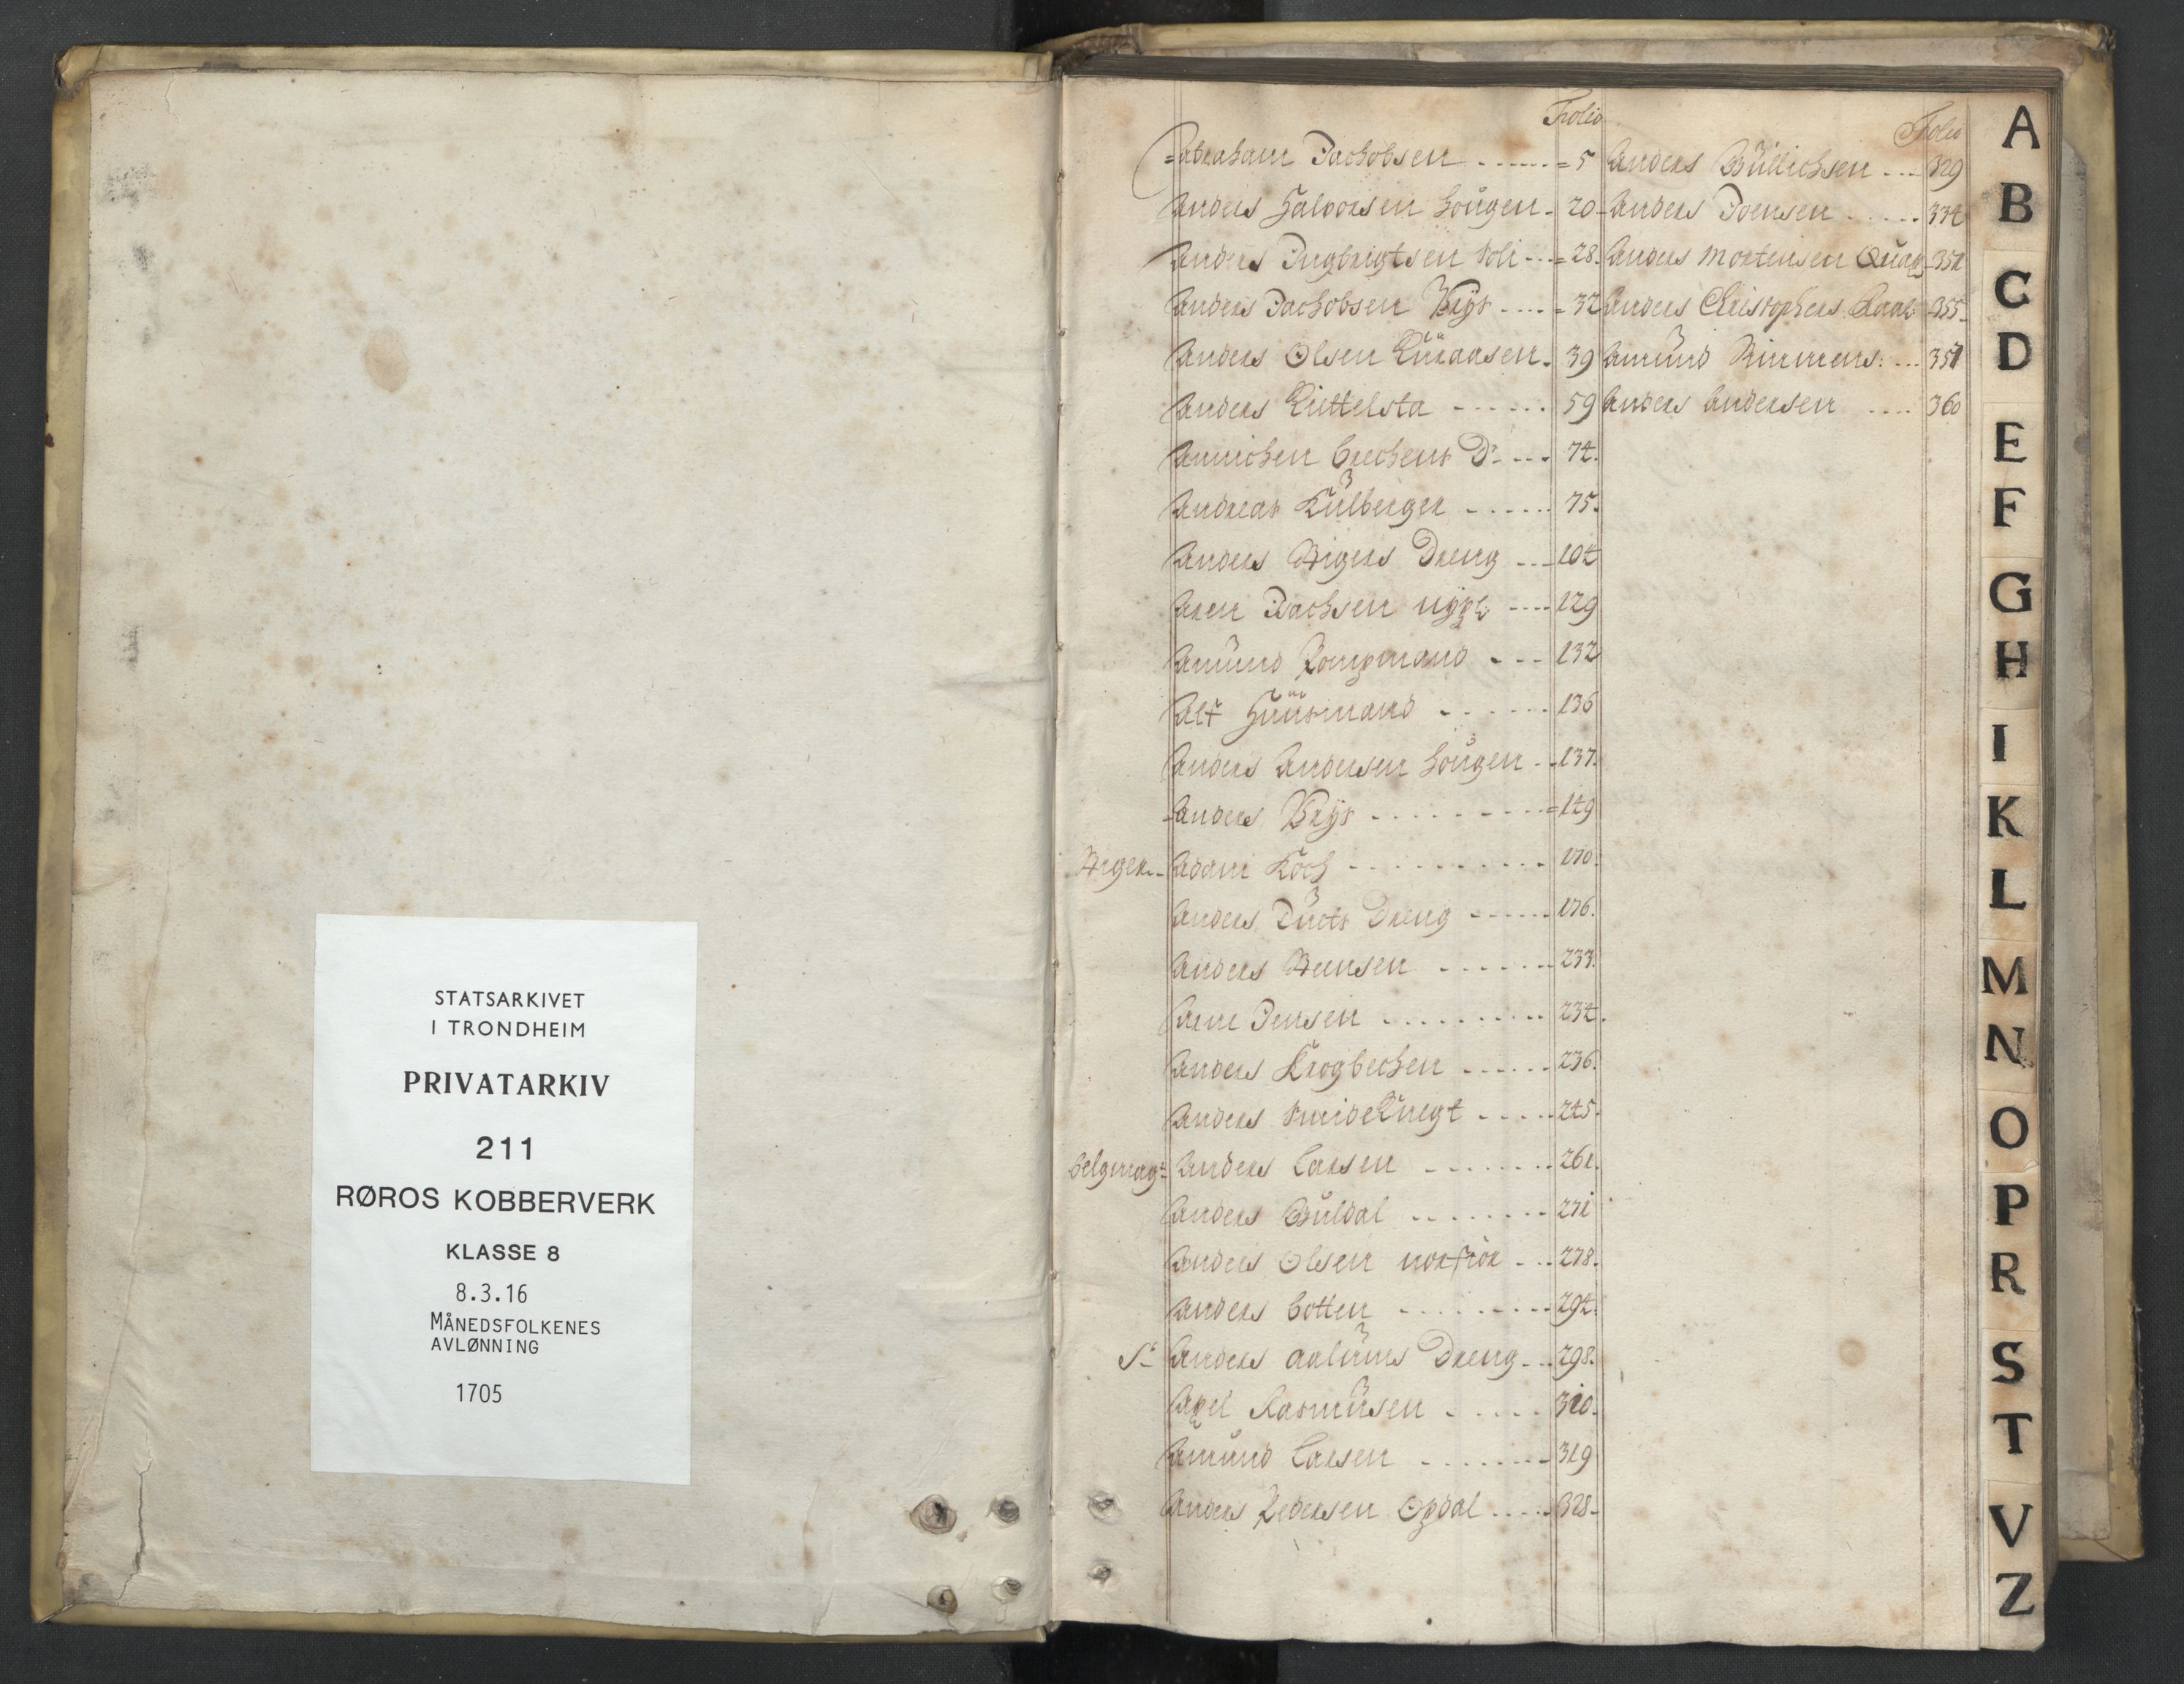 STATSARKIVET
I TRONDHEIM
PRIVATARKIV
211
RØROS KOBBERVERK
KLASSE 8
8.3.16
MÅNEDSFOLKENES
AVLØNNING
1705
Folio
Abraham Jachobsen 5
Anders Halvorsen Hougen 20
Anders Ingbrigtsen Soli 28
Anders Jachobsen 32
Anders Olsen 39
Anders Kiettelsta 59
Annichen D. 74
Andreas Külberger 75
Anders Stigers Dreng 104
Aren 129
Amund 132
Alf Huusmand 136
Anders Andersen Hougen 137
Anders 149
Stiger Adam Koch 170
Anders Dreng 176
Anders Steensen 233
Arne Jensen 234
Anders Krogbechen 236
Anders Smideknegt 245
Belgmag. Anders Larsen 261
Anders Buldal 271
Anders Olsen 278
Anders Cotten 294
St. Anders Aalums Dreng 298
Axel Rasmusen 310
Amund Larsen 319
Anders Pedersen Opdal 328
Folio
Anders 329
Anders Joensen 334
Anders Mortensen 351
Anders Christophers. 355
Amund
Anders Andersen 360
A
B
C
D
E
F
G
H
I
K
L
M
N
O
P
R
S
T
V
Z